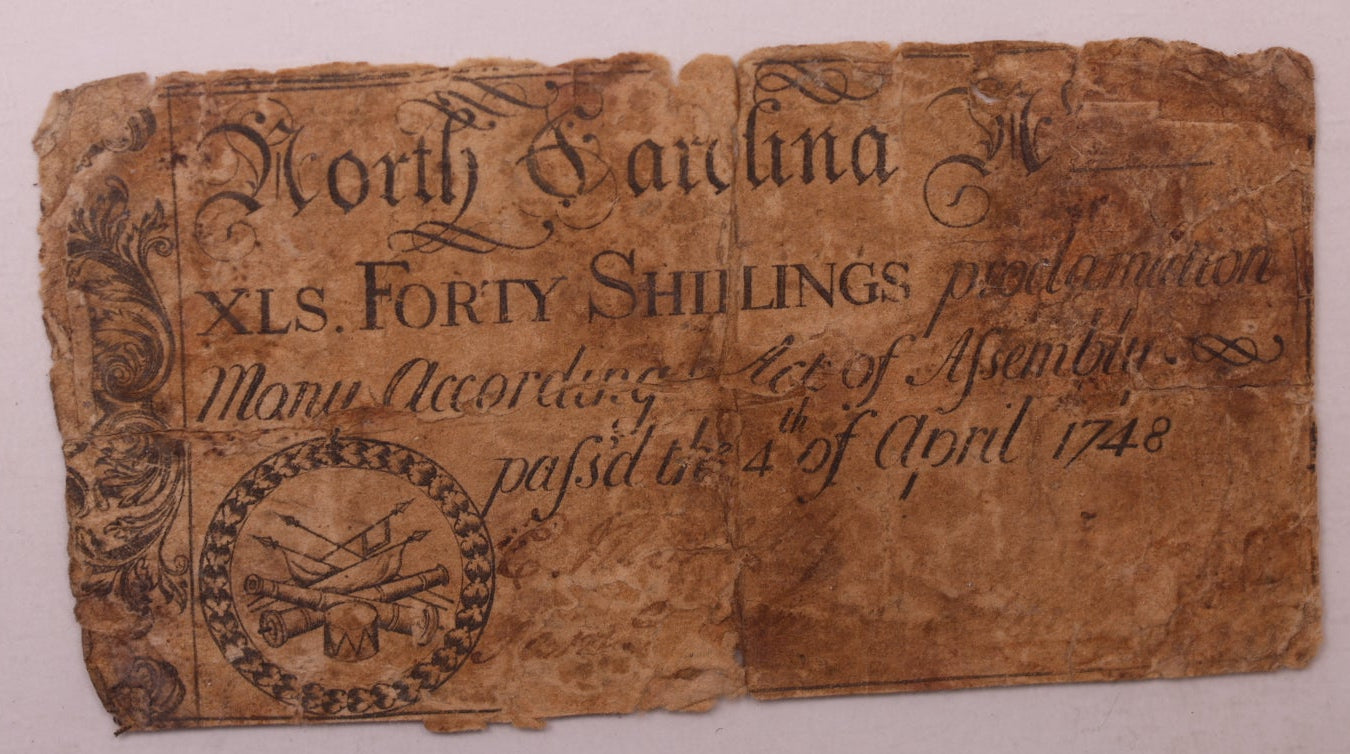 North Carolina N°
XLS. FORTY SHILLINGS proclamation
Mony According Act of Aſsembly
paſs'd the 4th of April 1748